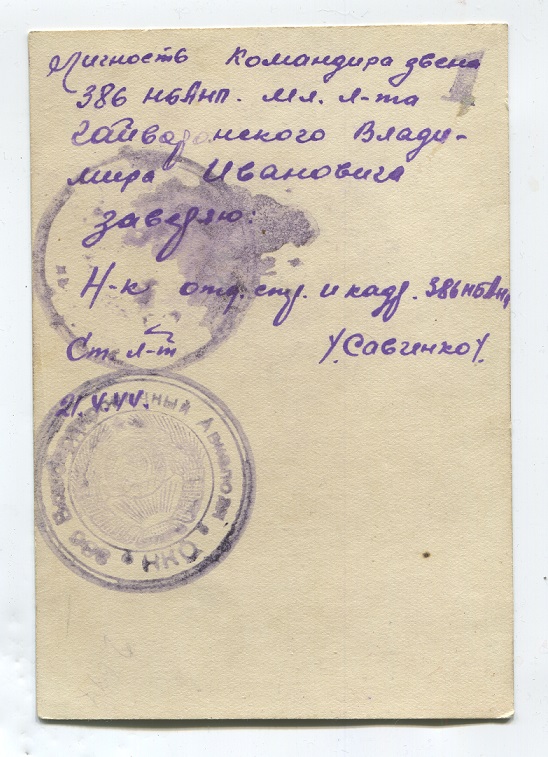 Личность командира звена
386 НБАнп. Мл. л-та
Гайворонского Влади-
мира Ивановича
заверяю:
Н-к отд. стр. и кадр. 386 НБАп
Ст. л-т /Савченко/.
21.V.44.
НКО
1